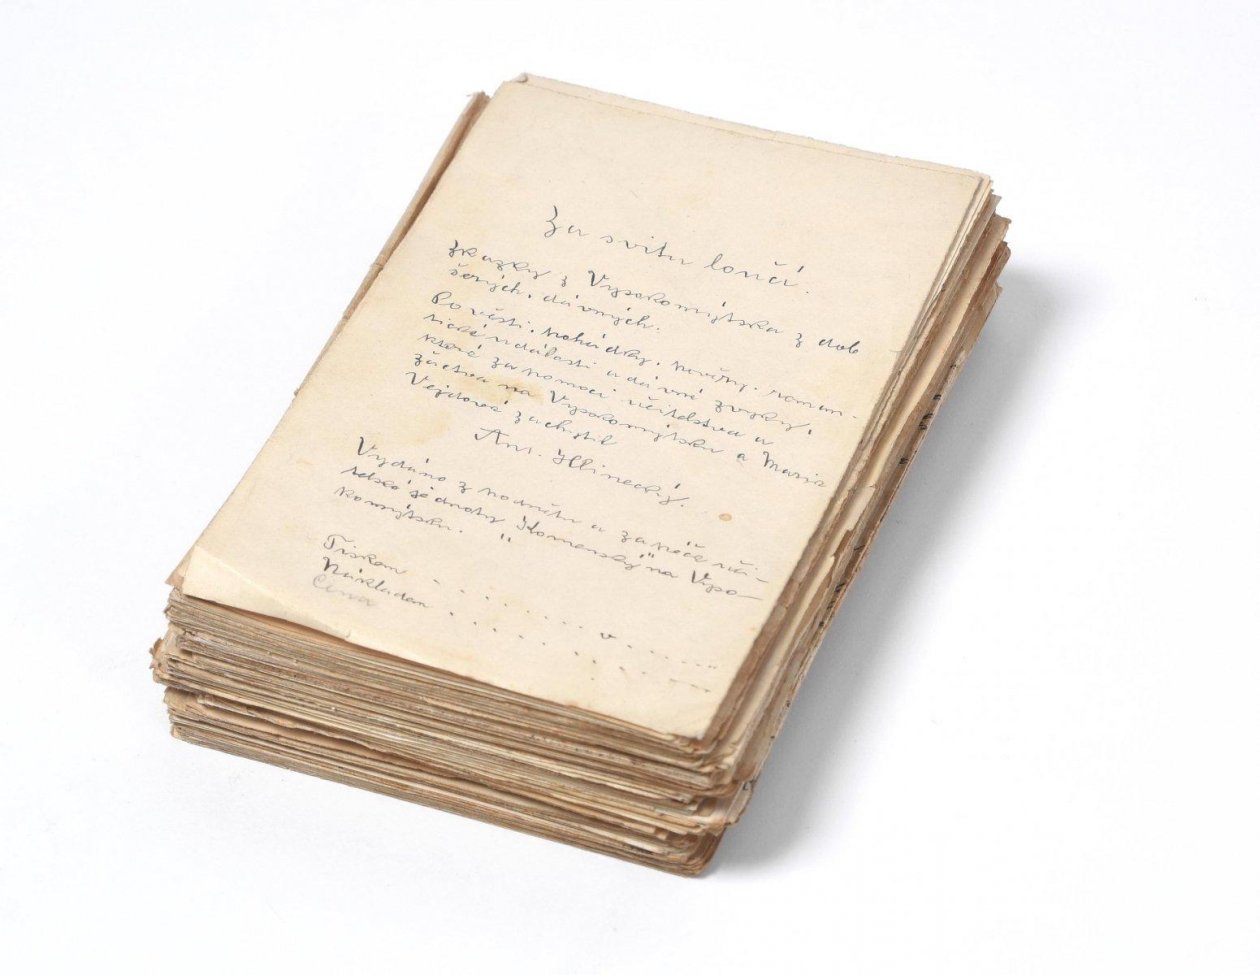 Za svitu loučí.
Zkazky z Vysokomýtska z dob
šerých, dávných.
Pověsti, pohádky, pověry, roman-
tické události a dávné zvyky,
které za pomoci učitelstva a
žactva na Vysokomýtsku a Marie
Vejdové zachytil
Ant. Hlinecký.
Vydáno z podnětu a za péče uči-
telské jednoty "Komenský" na Vyso-
komýtsku.
Tiskem . . . . . . . . v . . . . . . .
Nákladem . . . . . . . . . . . .
Cena